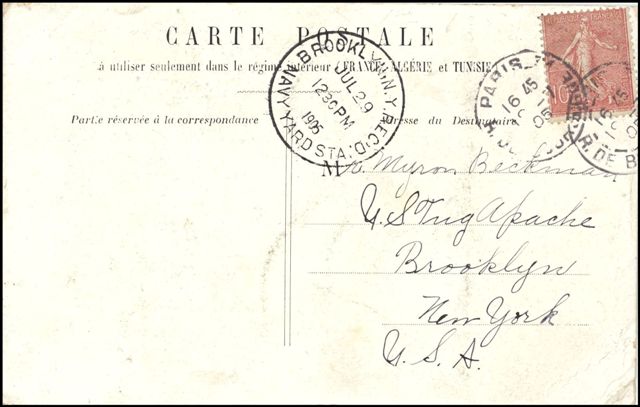 CARTE POSTALE
à utiliser seulement dans le régime intérieur (FRANCE, ALGÉRIE et TUNISIE)
BROOKLYN, N.Y. REC'D.
JUL 29
1230 PM
1905
NAVY YARD STA.
PARIS
16 45
05
10
R. DE B
Partie réservée à la correspondance
Adresse du Destinataire
Mr. Myron Beckman
U.S Tug Apache
Brooklyn
New York
U.S.A.